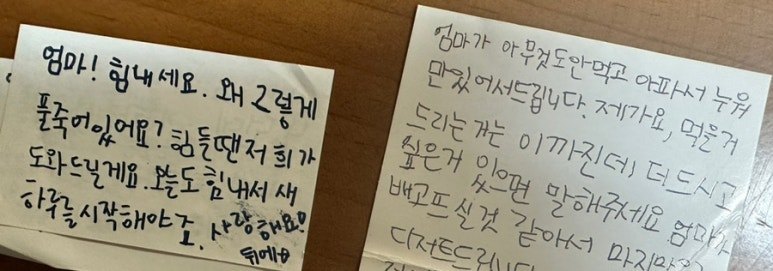 엄마! 힘내세요. 왜 그렇게
풀죽어있어요? 힘들땐 저희가
도와드릴게요. 오늘도 힘내서 새
하루를 시작해야죠. 사랑해요!
뒤에→
엄마가 아무것도안먹고 아파서 누워
만있어서드립니다. 제가요, 먹을거
드리는거는 이까진데, 더드시고
싶은거 있으면 말해주세요 엄마가
배고프실것 같아서 마지막
디저트드립니다